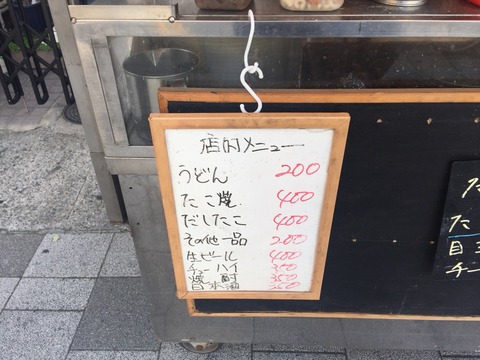 店内メニュー
うどん 200
たこ焼 400
だしたこ 400
その他一品 200
生ビール 400
チューハイ 350
焼酎 350
日本酒
た
チー